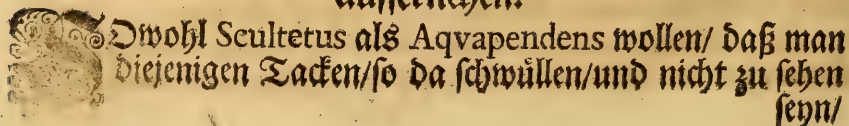 SOwohl Scultetus als Aqvapendens wollen/ daß man
diejenigen Tacken/so da schwüllen/und nicht zu sehen
seyn/